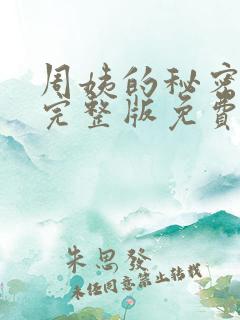 周姨的秘密
完整版免费
朱思發
未任同意禁止轉載